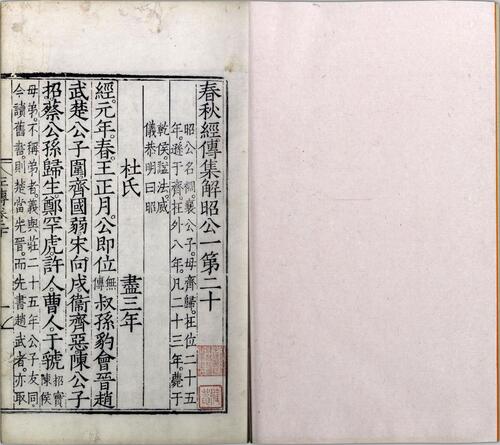 春秋經傳集解昭公一第二十
昭公名裯。襄公子。母齊歸。在位二十五
年。遜于齊。在外八年。凡二十三年。薨于
乾侯。諡法。威
儀恭明曰昭
杜氏 盡三年
經。元年。春。王正月。公即位無傳叔孫豹會晉趙
武楚公子圍齊國弱宋向戌衞齊惡陳公子
招蔡公孫歸生鄭罕虎許人。曹人。于虢招實陳侯
母弟。不稱弟者。義與莊二十五年公子友同。
今讀舊書。則楚當先晉。而先書趙武者。亦取